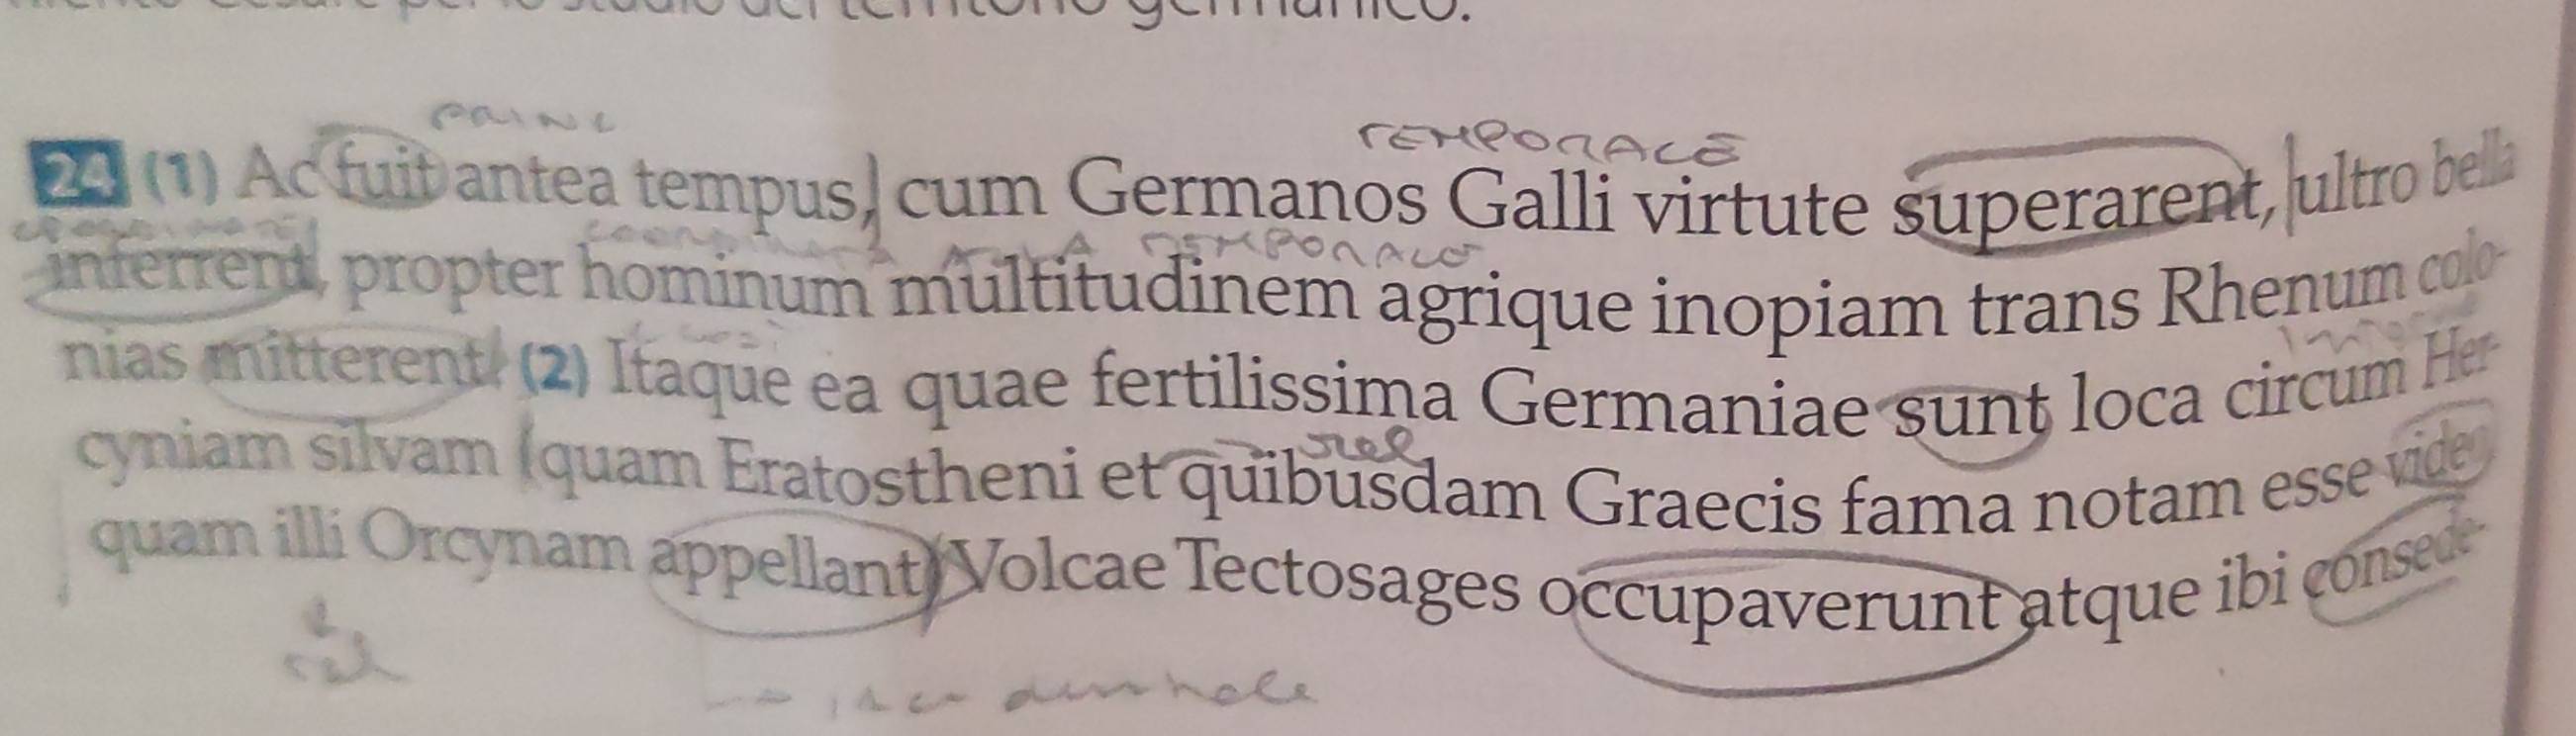 germanico.
PRINC
TEMPORALE
24 (1) Ac fuit antea tempus, cum Germanos Galli virtute superarent, ultro bella
TEMPORALE
inferrent, propter hominum multitudinem agrique inopiam trans Rhenum colo-
nias mitterent. (2) Itaque ea quae fertilissima Germaniae sunt loca circum Her-
cyniam silvam (quam Eratostheni et quibusdam Graecis fama notam esse video
rel
quam illi Orcynam appellant) Volcae Tectosages occupaverunt atque ibi consede-